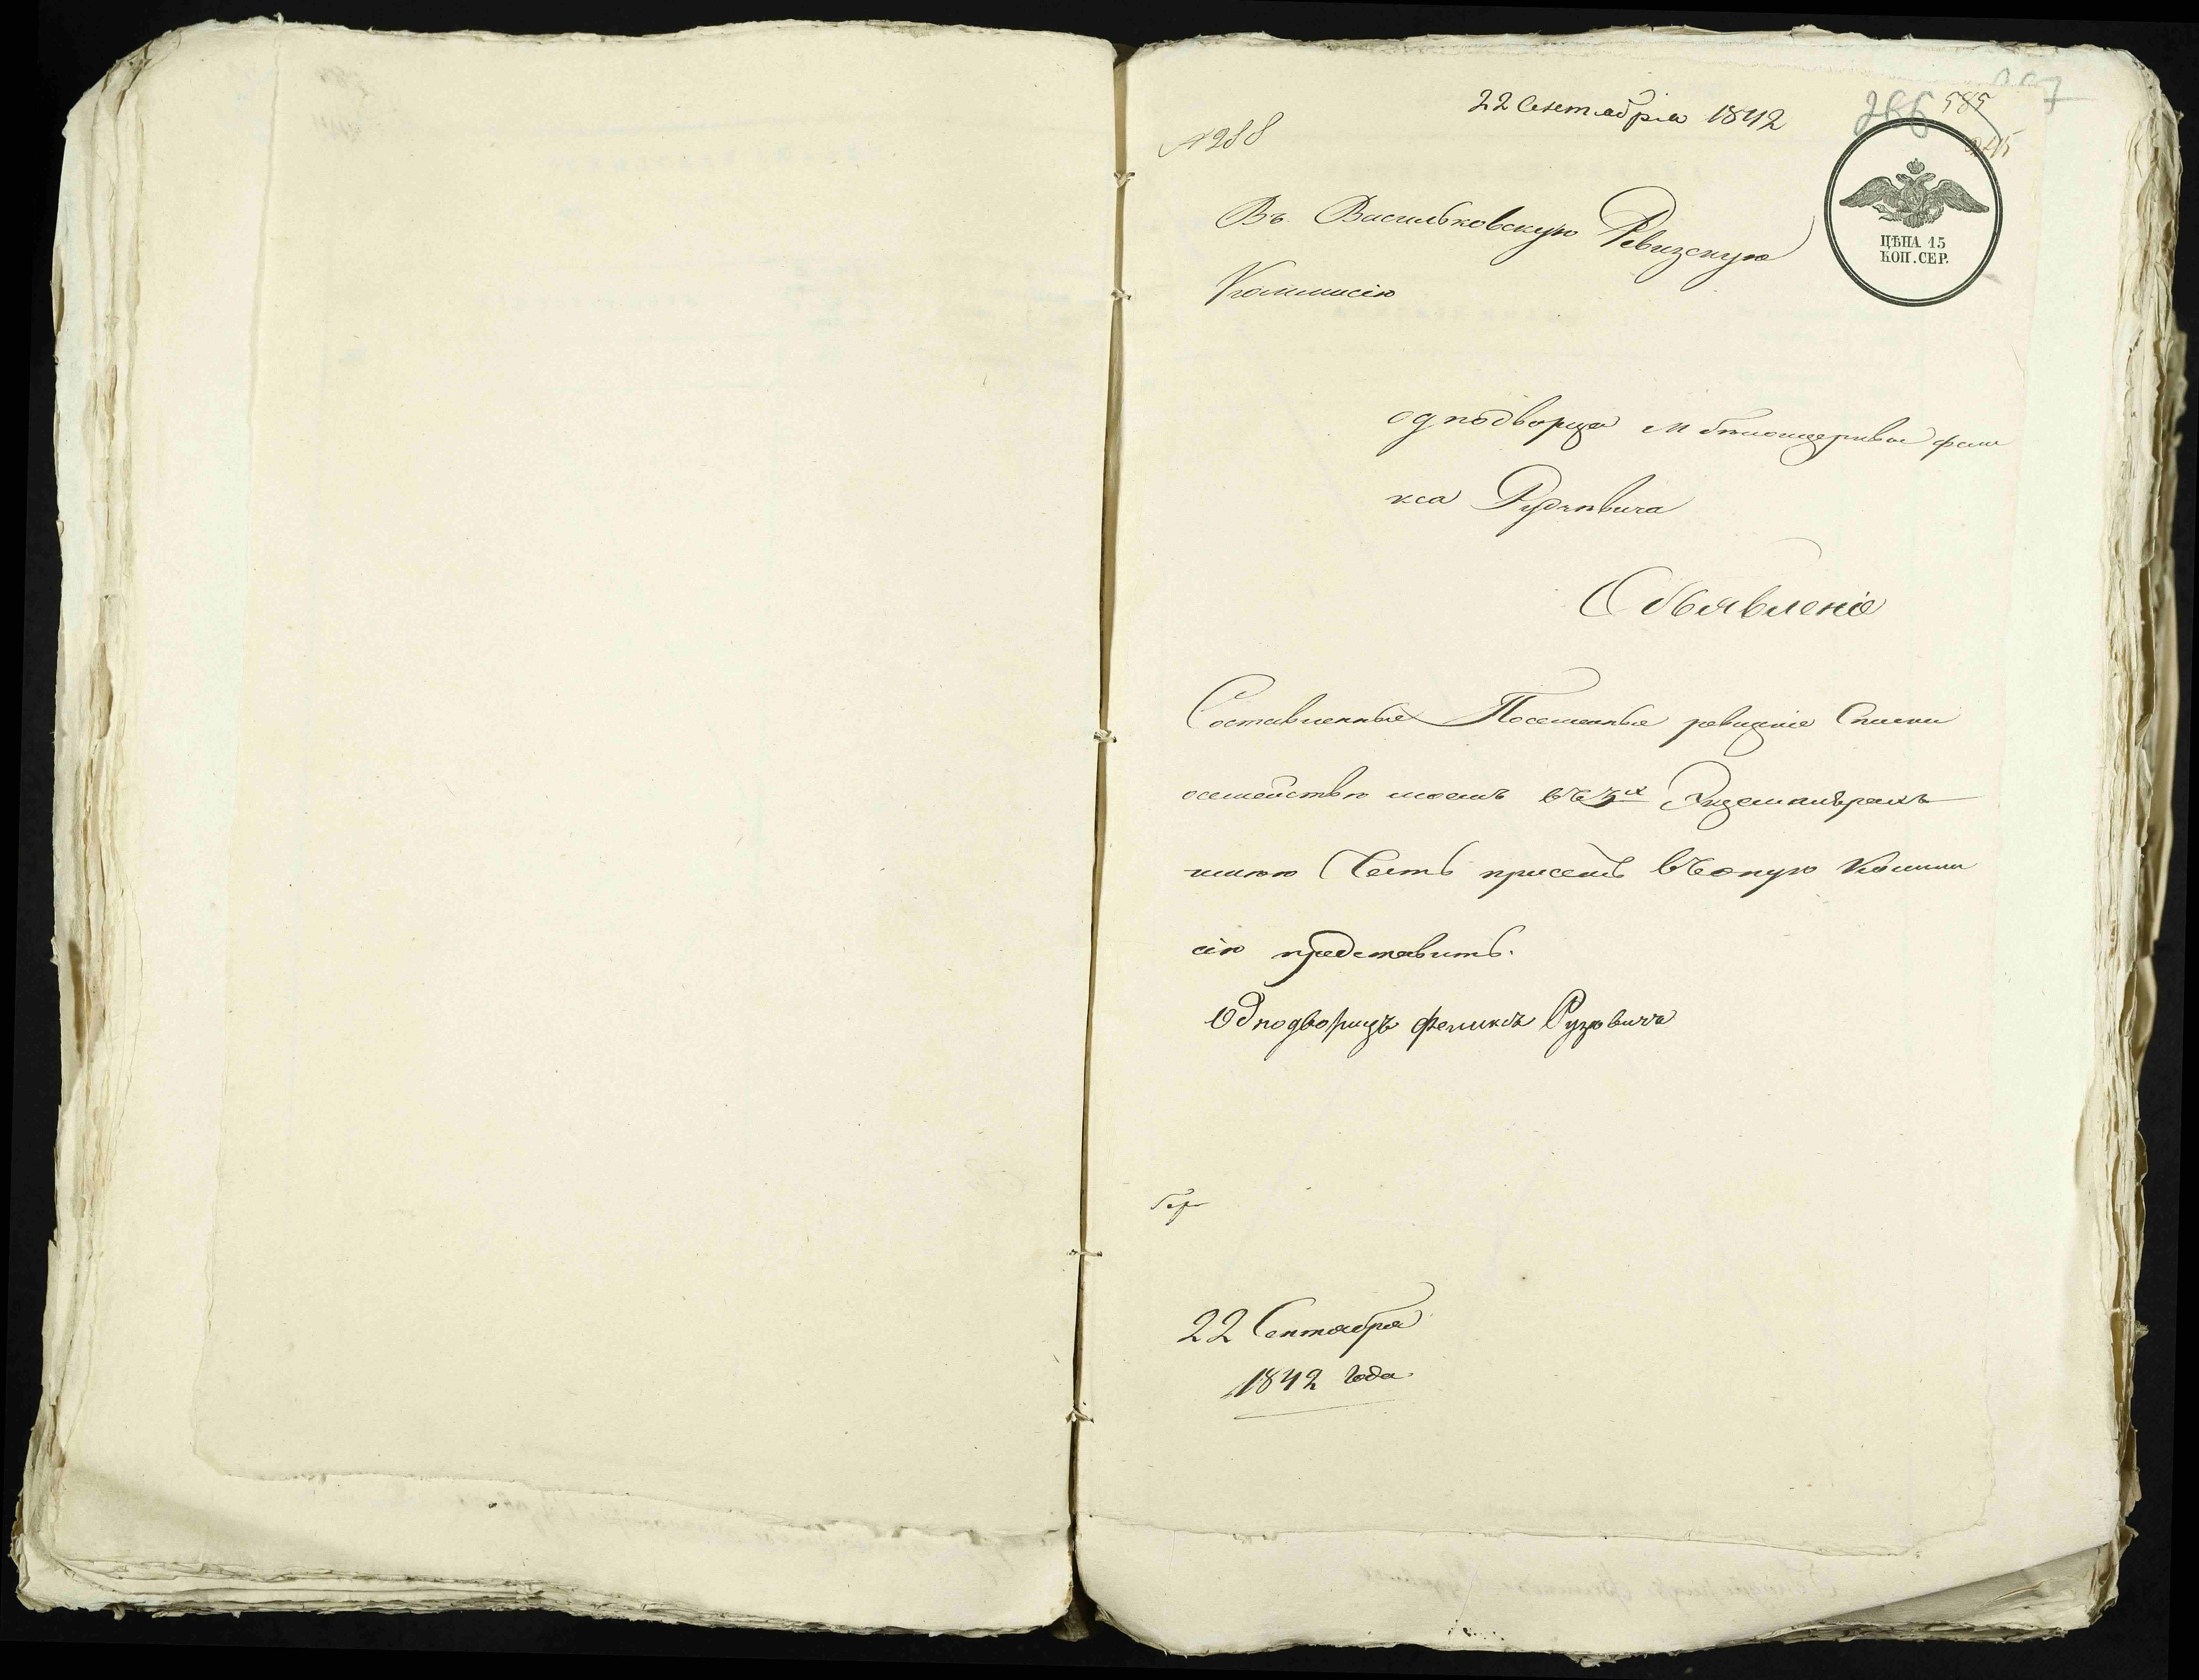 22 Сентабріа 1842
№ 288
585
ЦѢНА 15
КОП. СЕР.
Въ Васильковскую Ревизскую
Коммисію
однодворца М Бѣлоцеркви фели
кса Рудзовича
Объявленіе
Составленные Посемейные ревизкіе Списки
осемействѣ моемъ въ 3х Экземплярахъ
имѣю Честь присемъ въоную Комми
сію представить.
Однодворецъ феликсъ Рузовичъ
22 Сентабра
1842 года